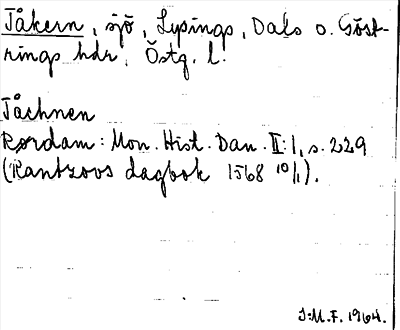 Tåkern, sjö, Lysings, Dals o. Göst-
rings hdr, Östg. l.
Tåchnen
Rørdam: Mon. Hist. Dan. II:1, s. 229
(Rantzovs dagbok 1568 10/1).
I:M.F. 1964.